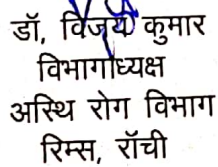 डॉ, विजय कुमार
विभागाध्यक्ष
अस्थि रोग विभाग
रिम्स, रॉची